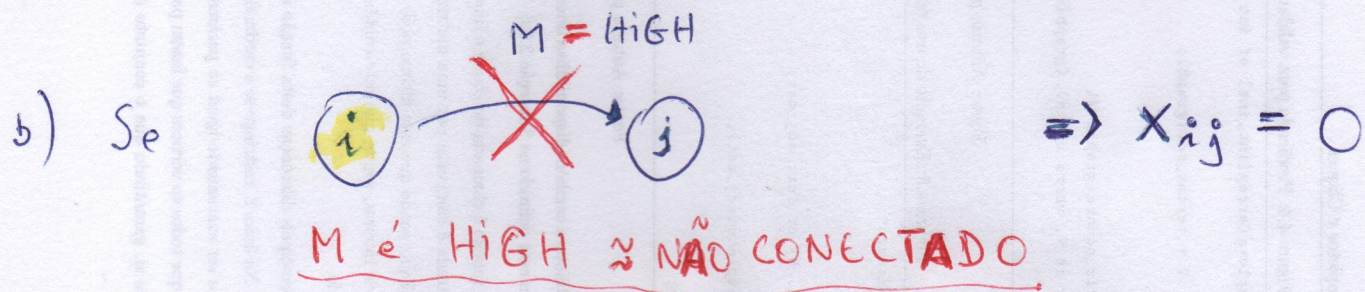 M = HiGH
b) Se i j => x_ij = 0
M é HiGH ≈ NÃO CONECTADO